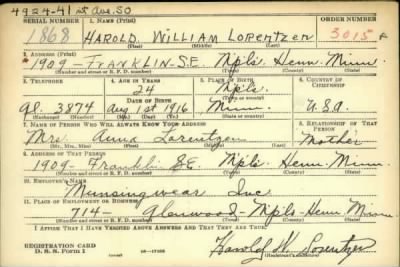 4924-41st Ave. SO
SERIAL NUMBER 1. NAME (Print) ORDER NUMBER
1868 HAROLD WILLIAM LORENTZEN 3015
(First) (Middle) (Last)
2. ADDRESS (Print)
1909 - FRANKLIN - S.E. Mpls. Henn. Minn.
(Number and street or R. F. D. number) (Town) (County) (State)
3. TELEPHONE 4. AGE IN YEARS 5. PLACE OF BIRTH 6. COUNTRY OF CITIZENSHIP
24 Mpls.
DATE OF BIRTH (Town or county)
Gl. 3874 Aug 1st 1916 Minn. U.S.A.
(Exchange) (Number) (Mo.) (Day) (Yr.) (State or country)
7. NAME OF PERSON WHO WILL ALWAYS KNOW YOUR ADDRESS 8. RELATIONSHIP OF THAT PERSON
Mrs. Anna Lorentzen Mother
(Mr., Mrs., Miss) (First) (Middle) (Last)
9. ADDRESS OF THAT PERSON
1909 - Franklin S.E. Mpls. Henn. Minn.
(Number and street or R. F. D. number) (Town) (County) (State)
10. EMPLOYER'S NAME
Munsingwear Inc
11. PLACE OF EMPLOYMENT OR BUSINESS
714 - Glenwood - Mpls. Henn Minn
(Number and street or R. F. D. number) (Town) (County) (State)
I AFFIRM THAT I HAVE VERIFIED ABOVE ANSWERS AND THAT THEY ARE TRUE.
REGISTRATION CARD
D. S. S. Form 1
Harold W. Lorentzen
(Registrant's signature)